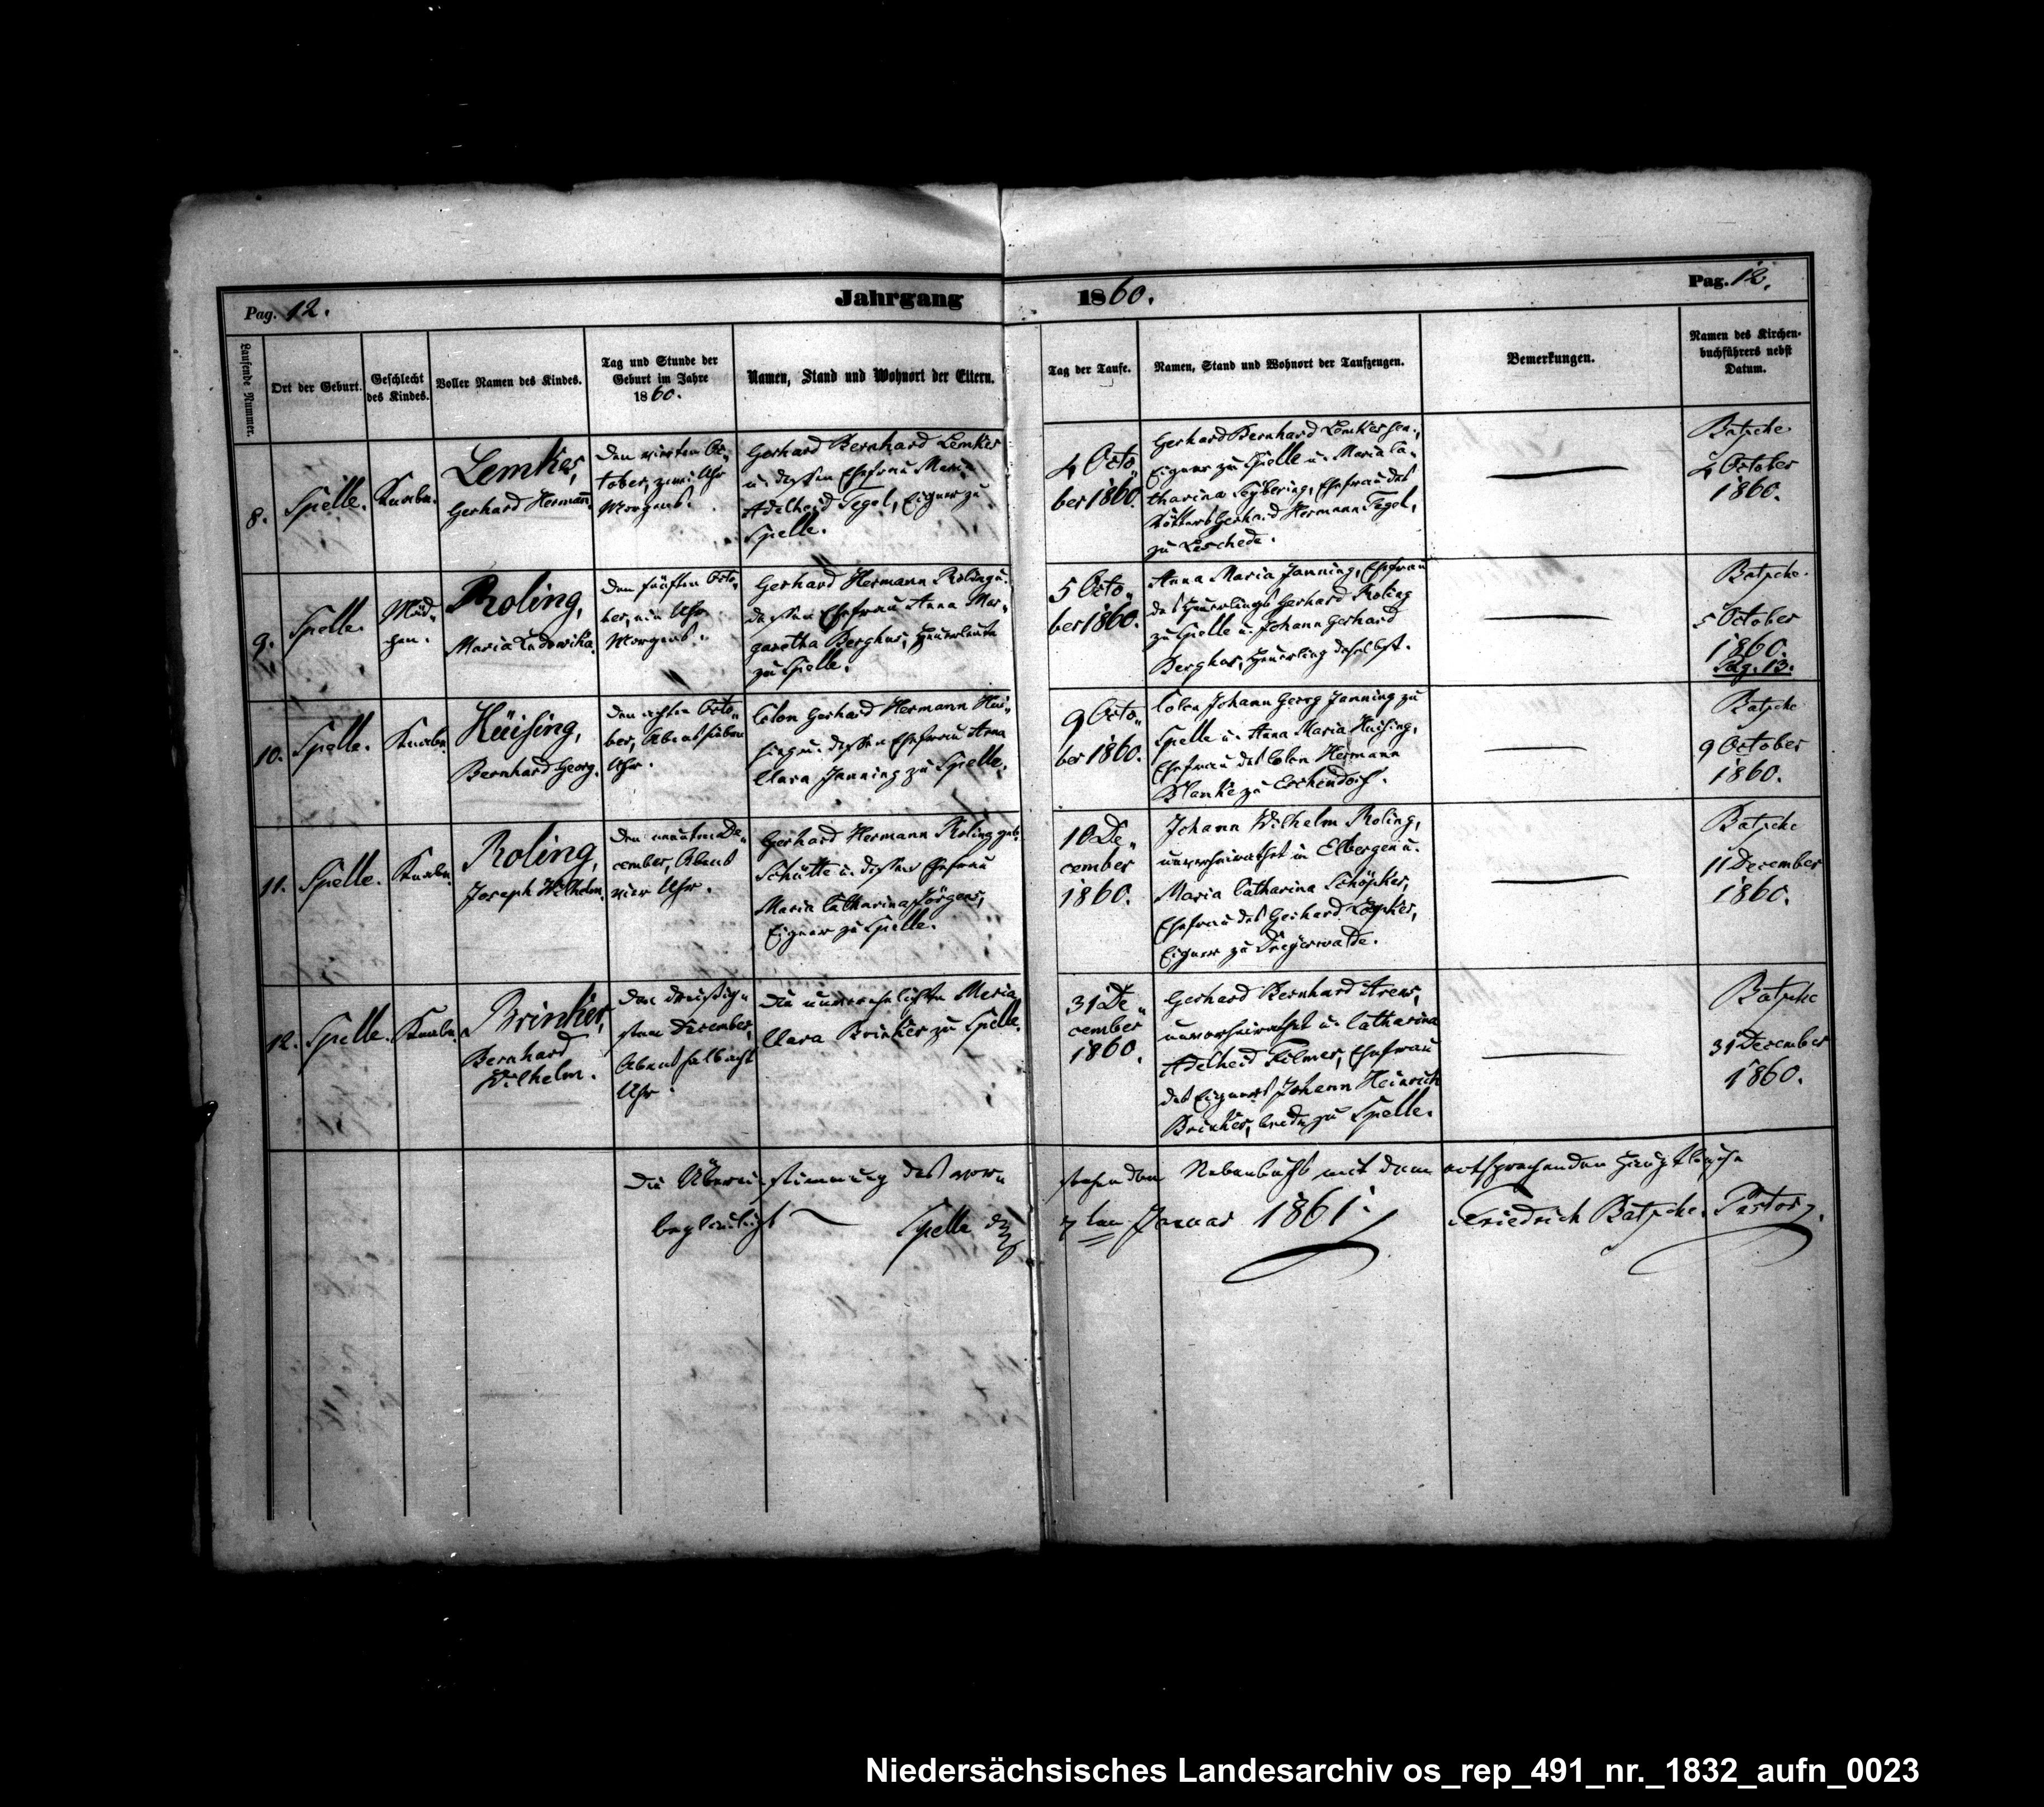 Pag. 12.
Jahrgang 1860.
Pag. 12.
Laufende Nummer.
Ort der Geburt.
Geschlecht
des Kindes.
Voller Namen des Kindes.
Tag und Stunde der
Geburt im Jahre
1860.
Namen, Stand und Wohnort der Eltern.
Tag der Taufe.
Namen, Stand und Wohnort der Taufzeugen.
Bemerkungen.
Namen des Kirchen-
buchführers nebst
Datum.
8.
Spelle.
Knabe.
Lemkes,
Gerhard Hermann
Den vierten Oc-
tober, zwei Uhr
Morgens.
Gerhard Bernhard Lemkes
u. dessen Ehefrau Maria
Adelheid Tegel, Eigner zu
Spelle.
4 Octo-
ber 1860.
Gerhard Bernhard Lemkes sen.,
Eigner zu Spelle u. Maria Ca-
tharina, Ehefrau des
Kötters Gerhard Hermann Tegel,
zu Leschede.
Batsche
4 October
1860.
9.
Spelle.
Mäd-
chen.
Roling,
Maria Ludowika.
Den fünften Octo-
ber, ein Uhr
Morgens.
Gerhard Hermann Roling u.
dessen Ehefrau Anna Mar-
garetha Berghus, Heuerleute
zu Spelle.
5 Octo-
ber 1860.
Anna Maria Janning, Ehefrau
des Heuerlings Gerhard Roling
zu Spelle u. Johann Gerhard
Berghus, Heuerling daselbst.
Batsche.
5 October
1860.
Pag. 13.
10.
Spelle.
Knabe.
Hüising,
Bernhard Georg.
Den achten Octo-
ber, Abends sieben
Uhr.
Colon Gerhard Hermann Hüi-
sing u. dessen Ehefrau Anna
Clara Janning zu Spelle.
9 Octo-
ber 1860.
Colon Johann Georg Janning zu
Spelle u. Anna Maria Hüising,
Ehefrau des Colon Hermann
Blanke zu Eschendorf.
Batsche
9 October
1860.
11.
Spelle.
Knabe.
Roling,
Joseph Wilhelm.
Den neunten De-
cember, Abends
vier Uhr.
Gerhard Hermann Roling geb.
Schütte u. dessen Ehefrau
Maria Catharina Jörgens,
Eigner zu Spelle.
10 De-
cember
1860.
Johann Wilhelm Roling,
unverheirathet in Elbergen u.
Maria Catharina Schöpker,
Ehefrau des Gerhard
Eigner zu Dreyerwalde.
Batsche
11 December
1860.
12.
Spelle.
Knabe.
Brinker,
Bernhard
Wilhelm.
Den dreißig-
sten December,
Abends halb acht
Uhr.
Die unverehelichte Maria
Clara Brinker zu Spelle.
31 De-
cember
1860.
Gerhard Bernhard Arens,
unverheirathet u. Catharina
Adelheid Filmer, Ehefrau
des Eigners Johann Heinrich
Brinker, beide zu Spelle.
Batsche
31 December
1860.
Die Übereinstimmung des vorstehenden Nebenbuchs mit dem entsprechenden Hauptbuche
beglaubigt Spelle den 7ten Januar 1861. Friedrich Batsche, Pastor.
Niedersächsisches Landesarchiv os_rep_491_nr._1832_aufn_0023